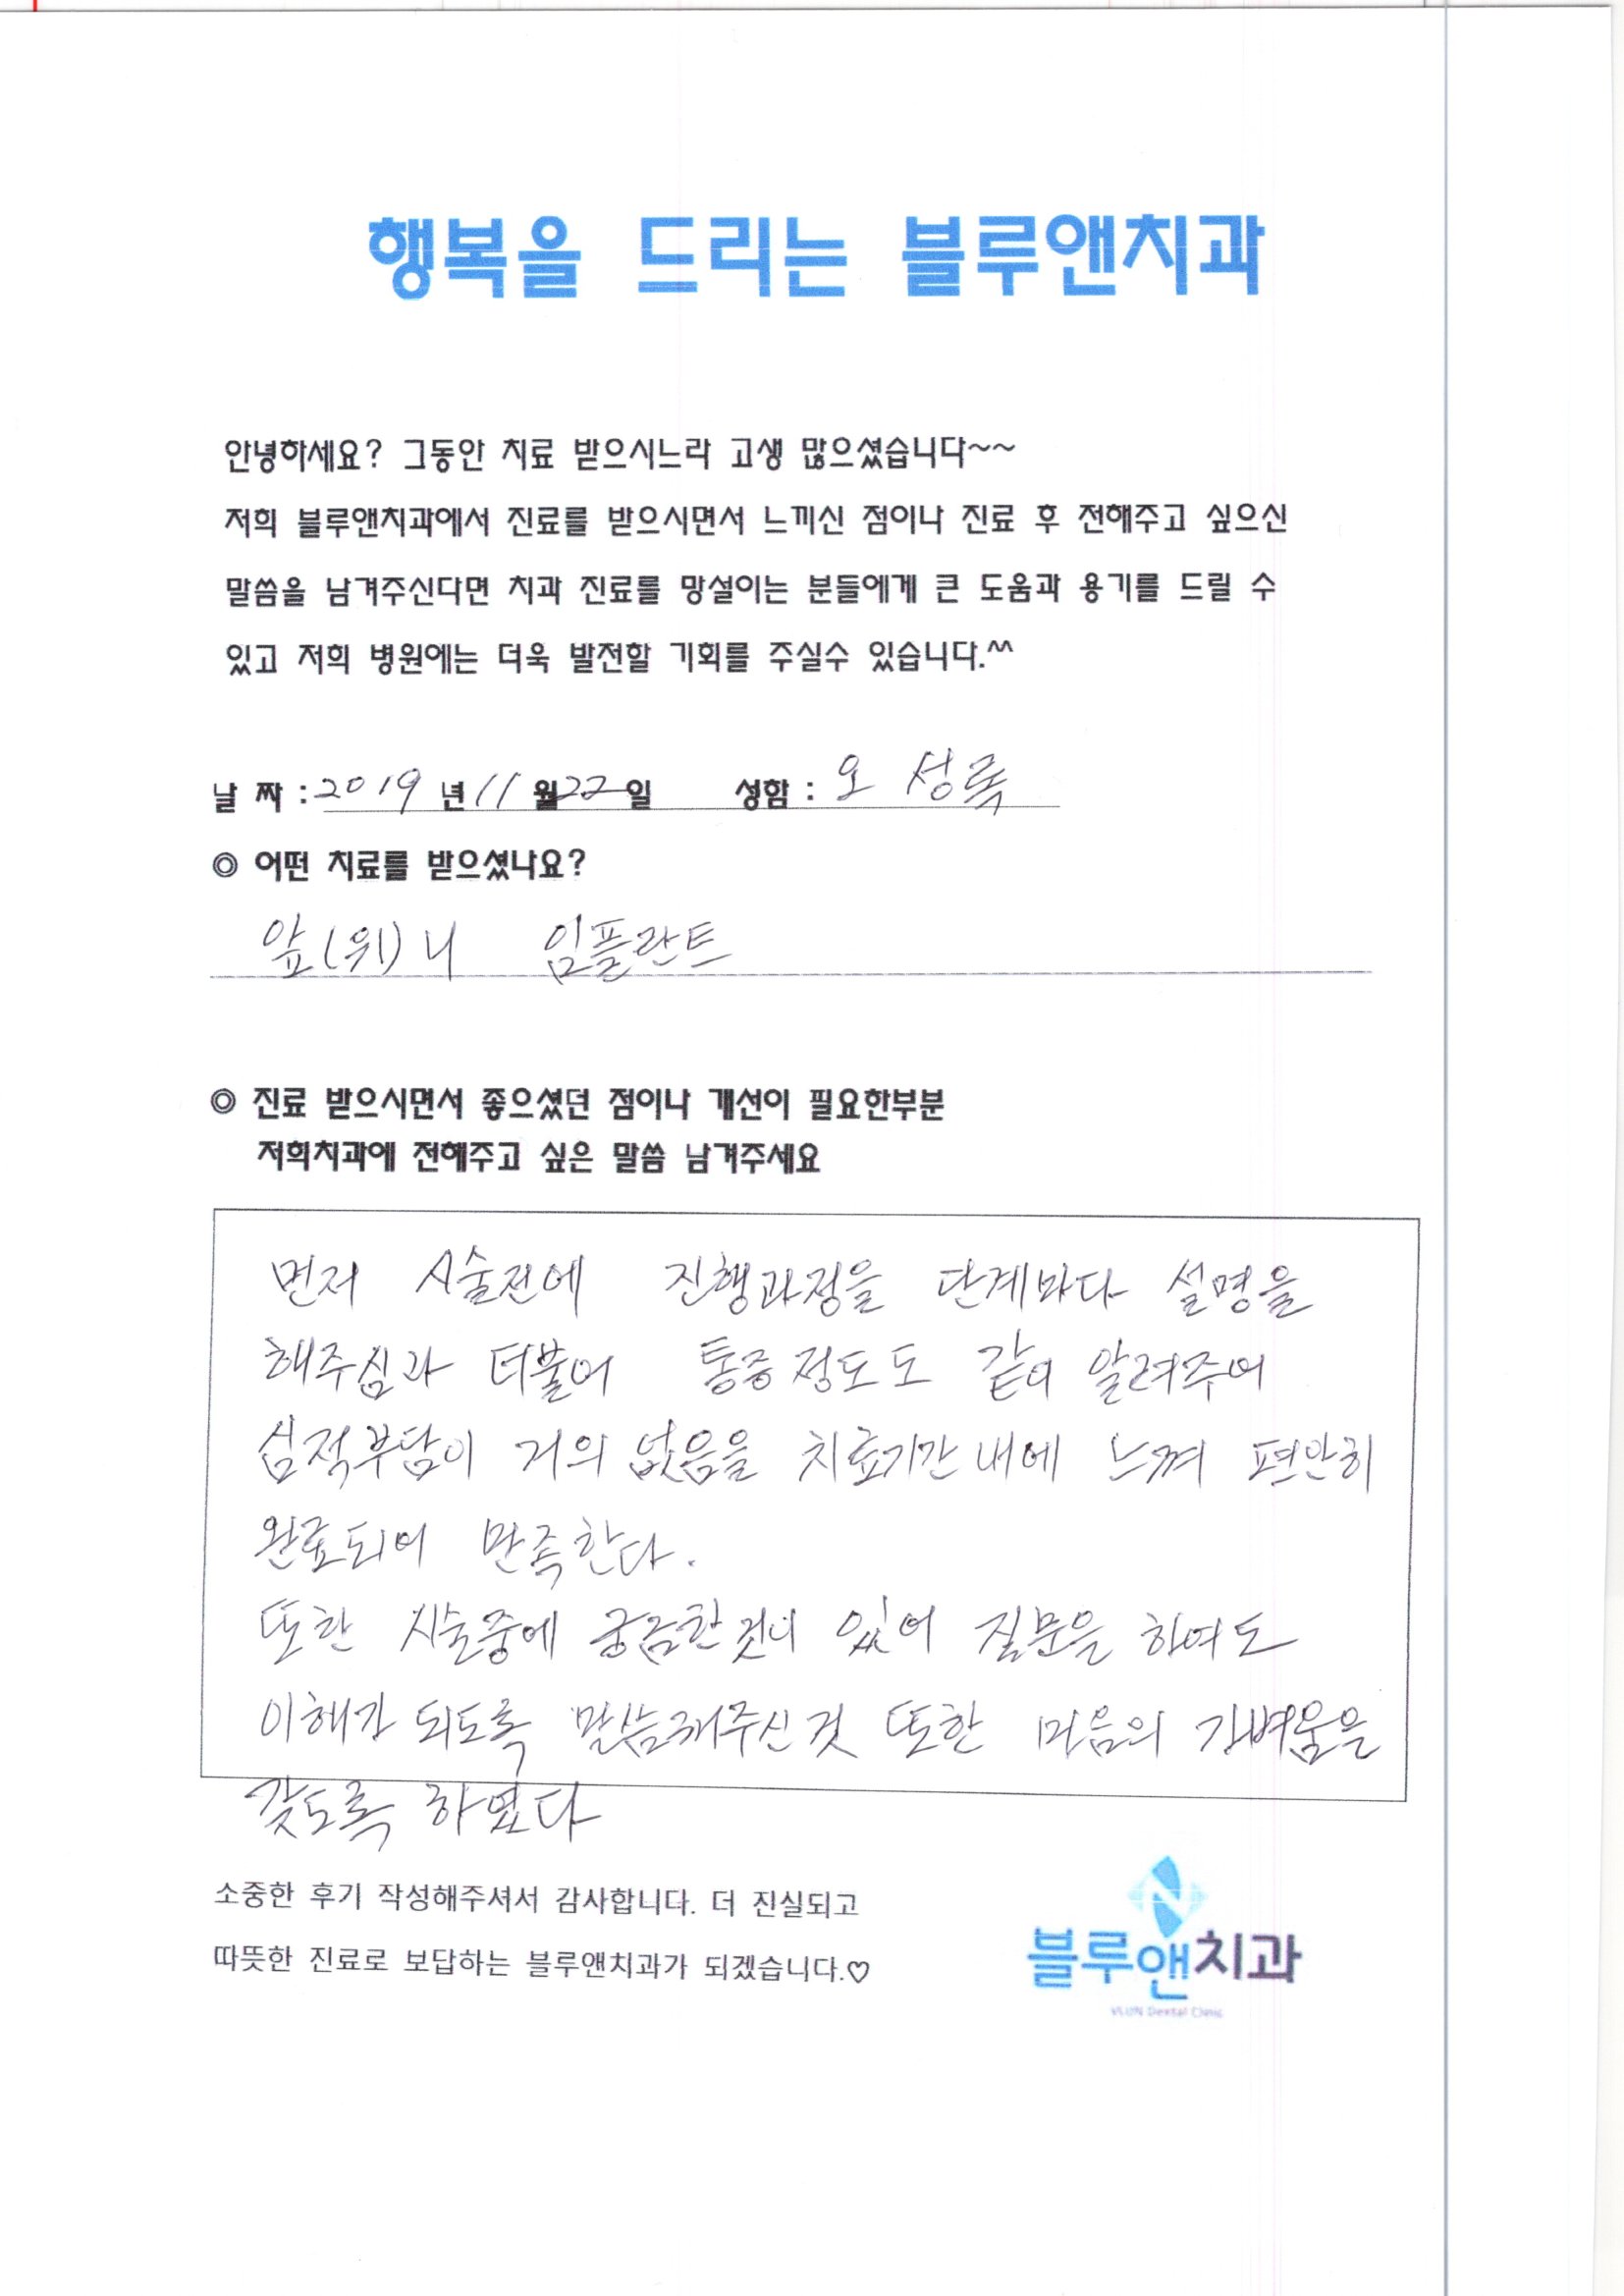 행복을 드리는 블루앤치과
안녕하세요? 그동안 치료 받으시느라 고생 많으셨습니다~~
저희 블루앤치과에서 진료를 받으시면서 느끼신 점이나 진료 후 전해주고 싶으신
말씀을 남겨주신다면 치과 진료를 망설이는 분들에게 큰 도움과 용기를 드릴 수
있고 저희 병원에는 더욱 발전할 기회를 주실수 있습니다.^^
날 짜 : 2019 년 11 월 22 일 성함 : 오 성록
◎ 어떤 치료를 받으셨나요?
앞(위)니 임플란트
◎ 진료 받으시면서 좋으셨던 점이나 개선이 필요한부분
저희치과에 전해주고 싶은 말씀 남겨주세요
먼저 시술전에 진행과정을 단계마다 설명을
해주심과 더불어 통증정도도 같이 알려주어
심적부담이 거의 없음을 치료기간내에 느껴 편안히
완료되어 만족한다.
또한 시술중에 궁금한것이 있어 질문을 하여도
이해가 되도록 말씀해주신것 또한 마음의 가벼움을
갖도록 하였다
소중한 후기 작성해주셔서 감사합니다. 더 진실되고
따뜻한 진료로 보답하는 블루앤치과가 되겠습니다.♡
블루앤치과
VLUN Dental Clinic